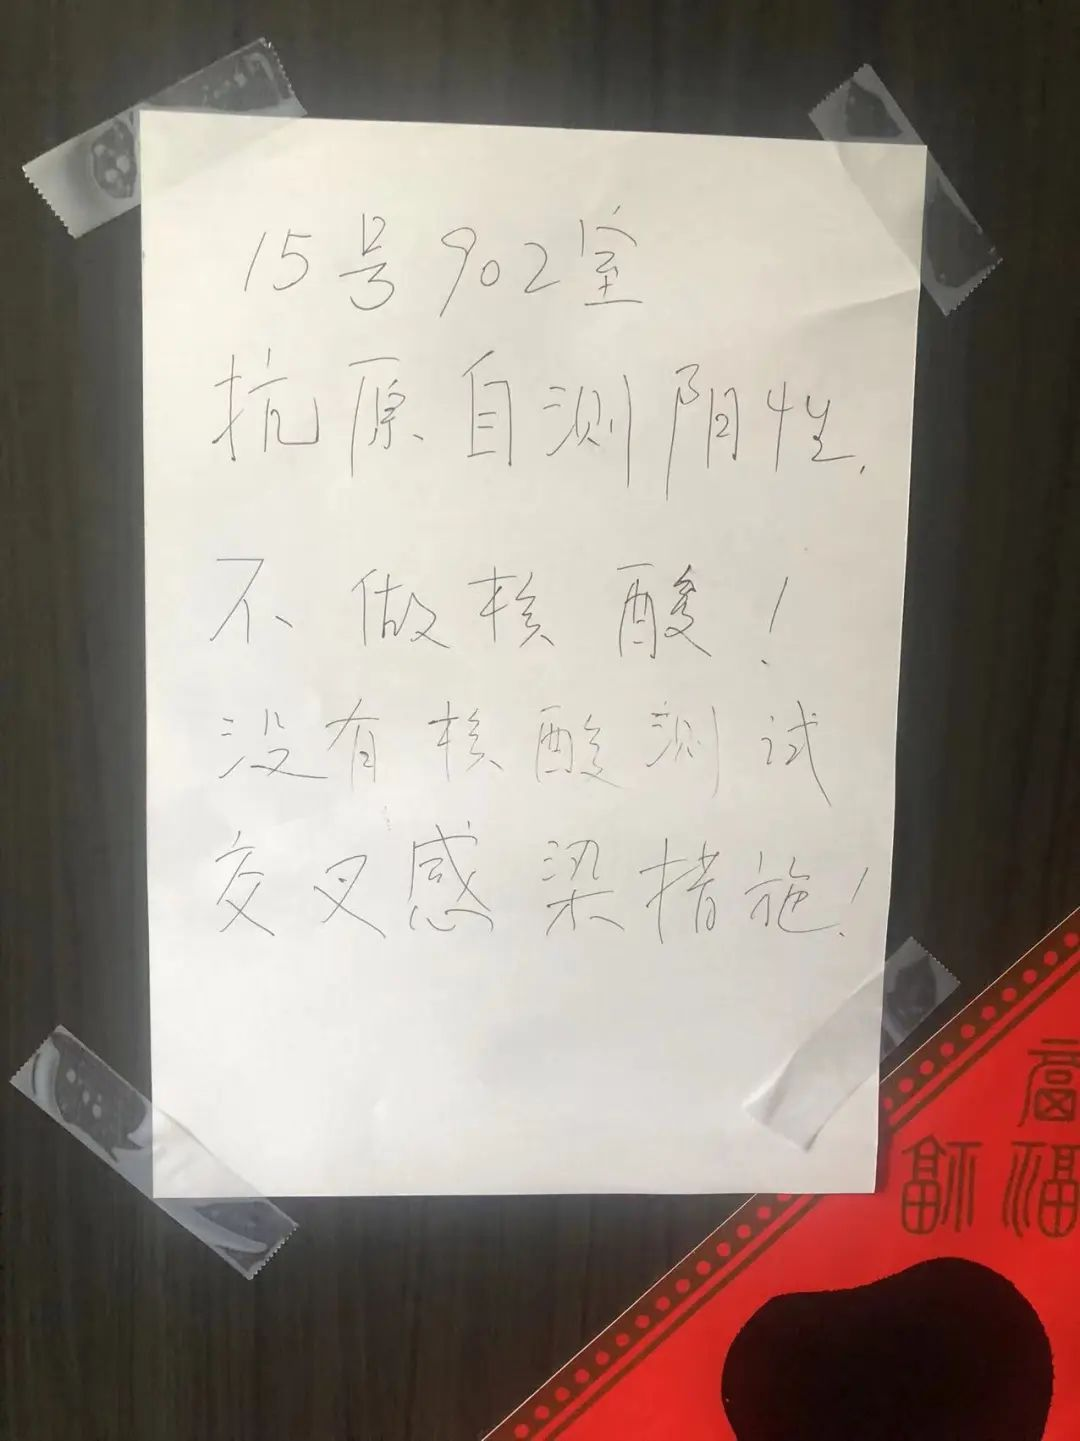 15号902室
抗原自测阴性.
不做核酸!
没有核酸测试
交叉感染措施!
福
福